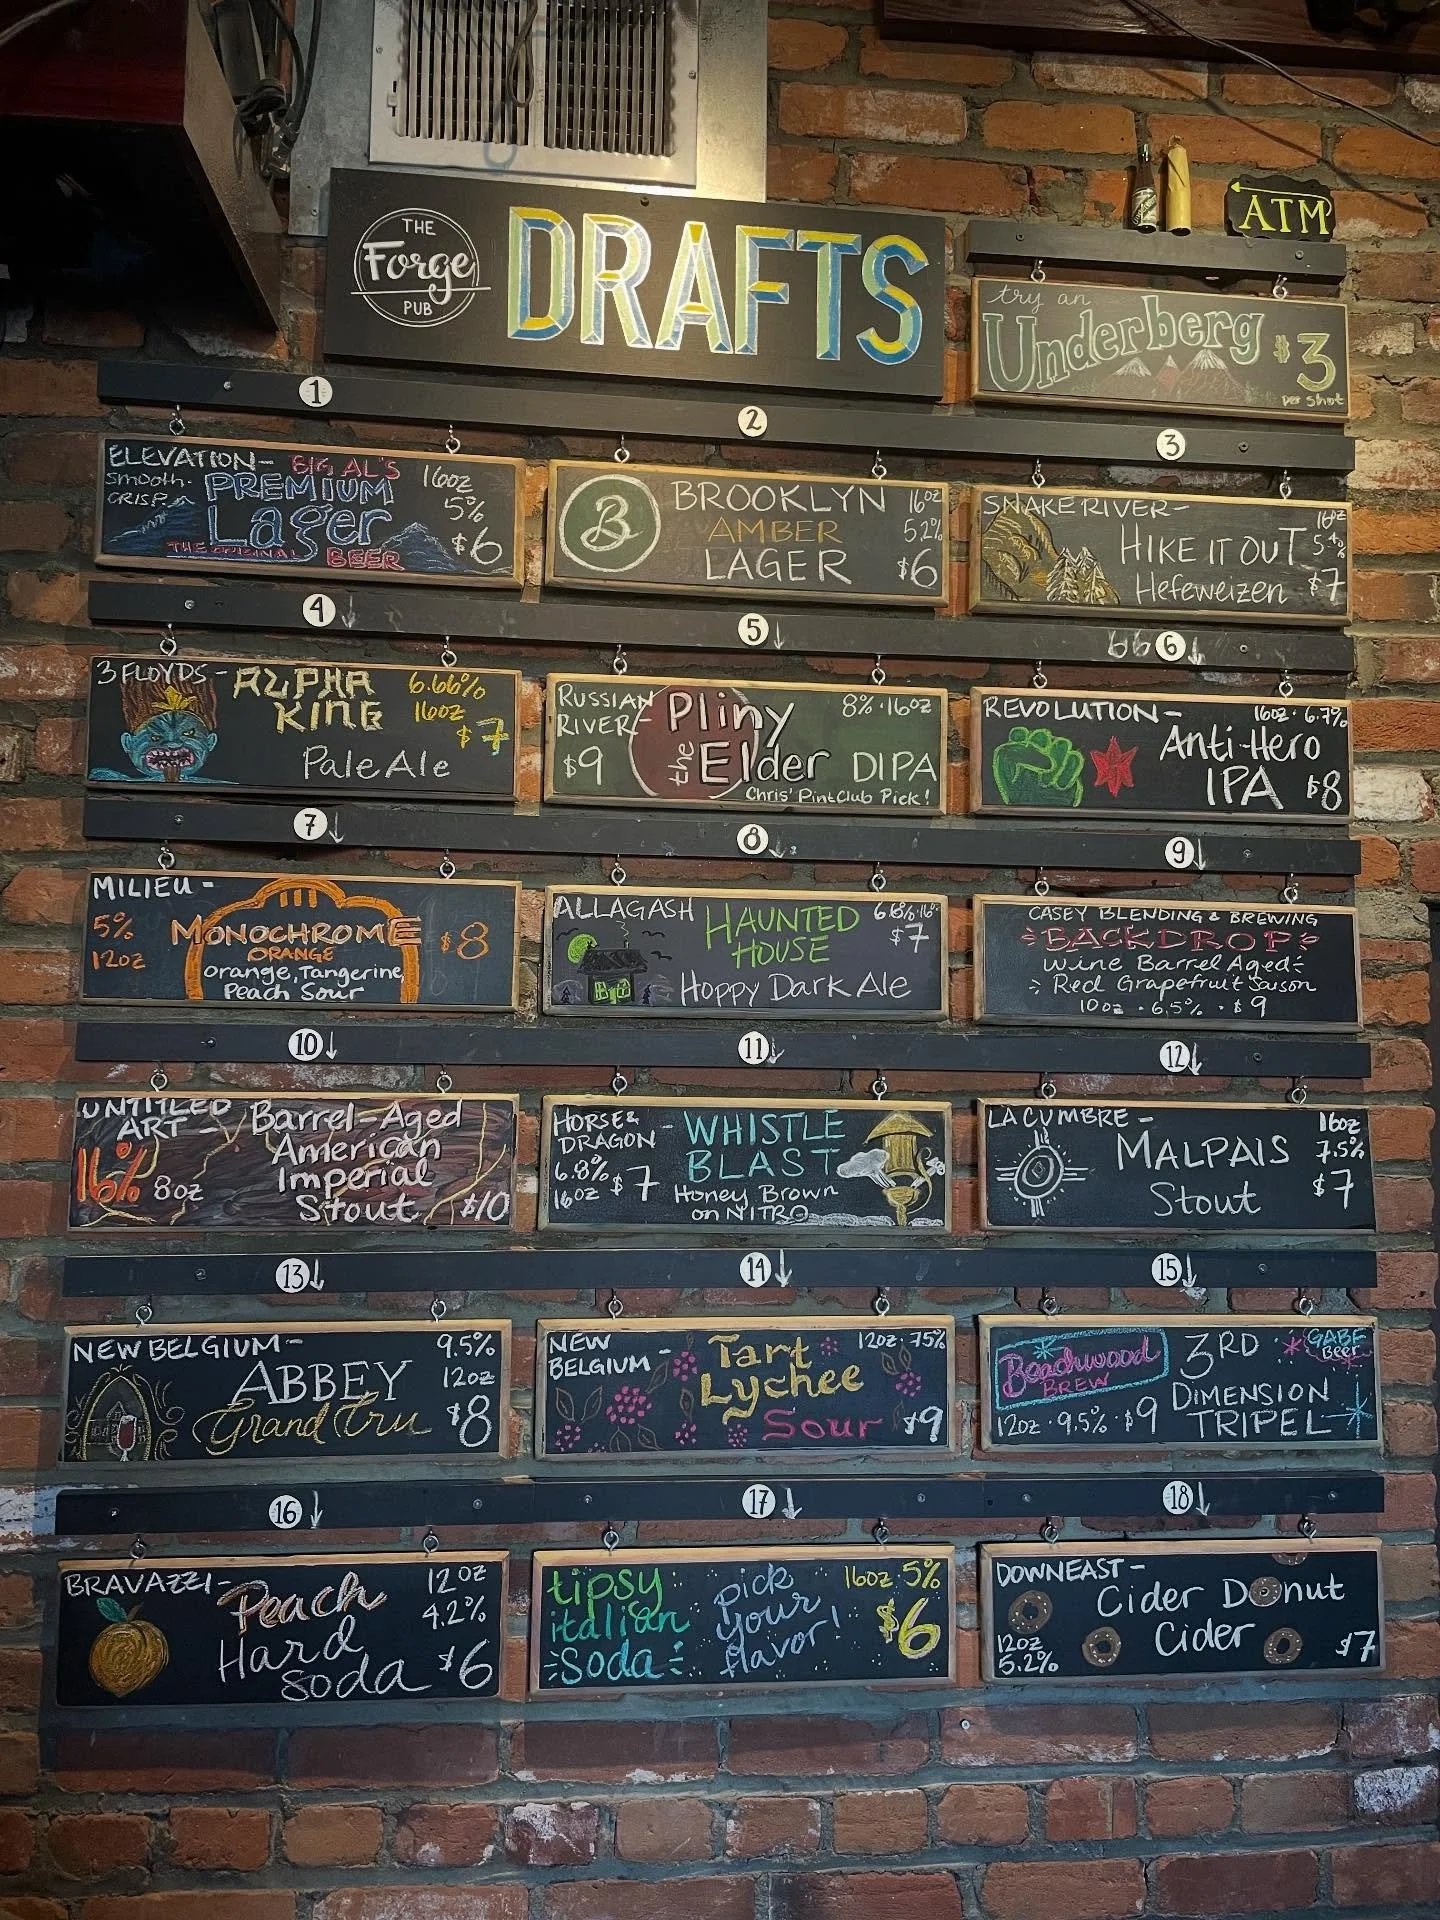 THE
Forge
PUB
DRAFTS
ATM
try an
Underberg $3
per shot
1
2
3
ELEVATION- BIG AL'S 16oz
smooth. PREMIUM 5%
CRISP. Lager $6
THE ORIGINAL BEER
B BROOKLYN 16oz
AMBER 5.2%
LAGER $6
SNAKE RIVER- 16oz
HIKE IT OUT 5.4%
Hefeweizen $7
4
5
6
3 FLOYDS- ALPHA 6.66%
KING 16oz
$7
Pale Ale
RUSSIAN Pliny 8%·16oz
RIVER- the Elder DIPA
$9
Chris' PintClub Pick!
REVOLUTION- 16oz· 6.7%
Anti-Hero
IPA $8
7
8
9
MILIEU -
5% MONOCHROME $8
12oz ORANGE
orange, Tangerine,
Peach Sour
ALLAGASH HAUNTED 6.6%·16oz
HOUSE $7
Hoppy Dark Ale
CASEY BLENDING & BREWING
BACKDROP
Wine Barrel Aged
Red Grapefruit Saison
10oz · 6.5% · $9
10
11
12
UNTITLED Barrel-Aged
ART - American
16% 8oz Imperial
Stout $10
HORSE& WHISTLE
DRAGON- BLAST
6.8% $7 Honey Brown
16oz on NITRO
LA CUMBRE - 16oz
MALPAIS 7.5%
Stout $7
13
14
15
NEW BELGIUM- 9.5%
ABBEY 12oz
Grand Cru $8
NEW Tart 12oz·7.5%
BELGIUM- Lychee
Sour $9
Beachwood 3RD GABE
BREW DIMENSION Beer
12oz·9.5%·$9 TRIPEL
16
17
18
BRAVAZZI- Peach 12oz
Hard 4.2%
Soda $6
tipsy pick 16oz 5%
italian your $6
Soda flavor!
DOWNEAST-
Cider Donut
12oz Cider $7
5.2%